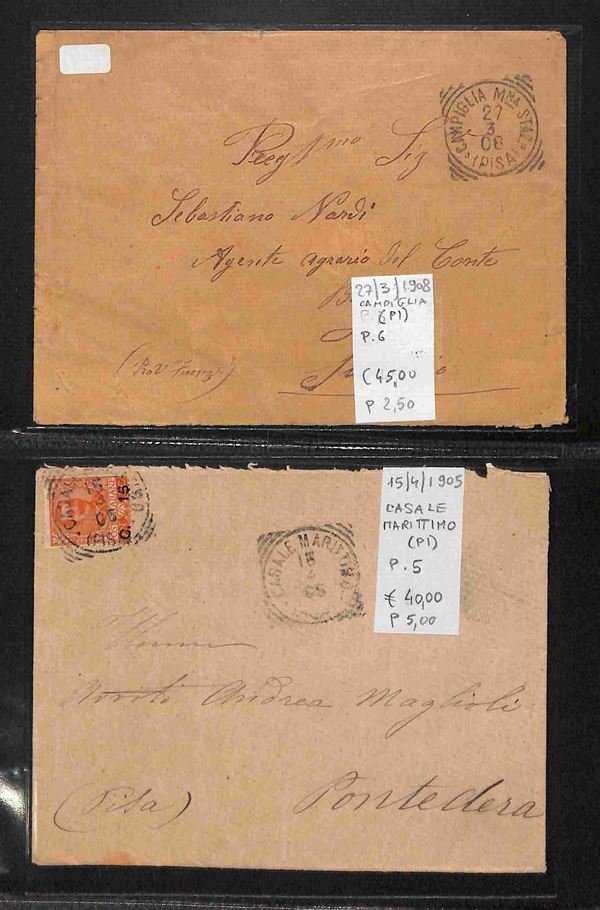 CAMPIGLIA Mna STAZe
27
3
08
(PISA)
Sig
Sebastiano Nardi
Agente agrario del Conte
(Prov Firenze)
27/3/1908
CAMPIGLIA
P. (PI)
P. 6
€ 45,00
P 2,50
C. 15
CASALE MARITTIMO
15
15/4/1905
CASALE
MARITTIMO
(PI)
P. 5
€ 40,00
P 5,00
Andrea Maglioli
(Pisa)
Pontedera